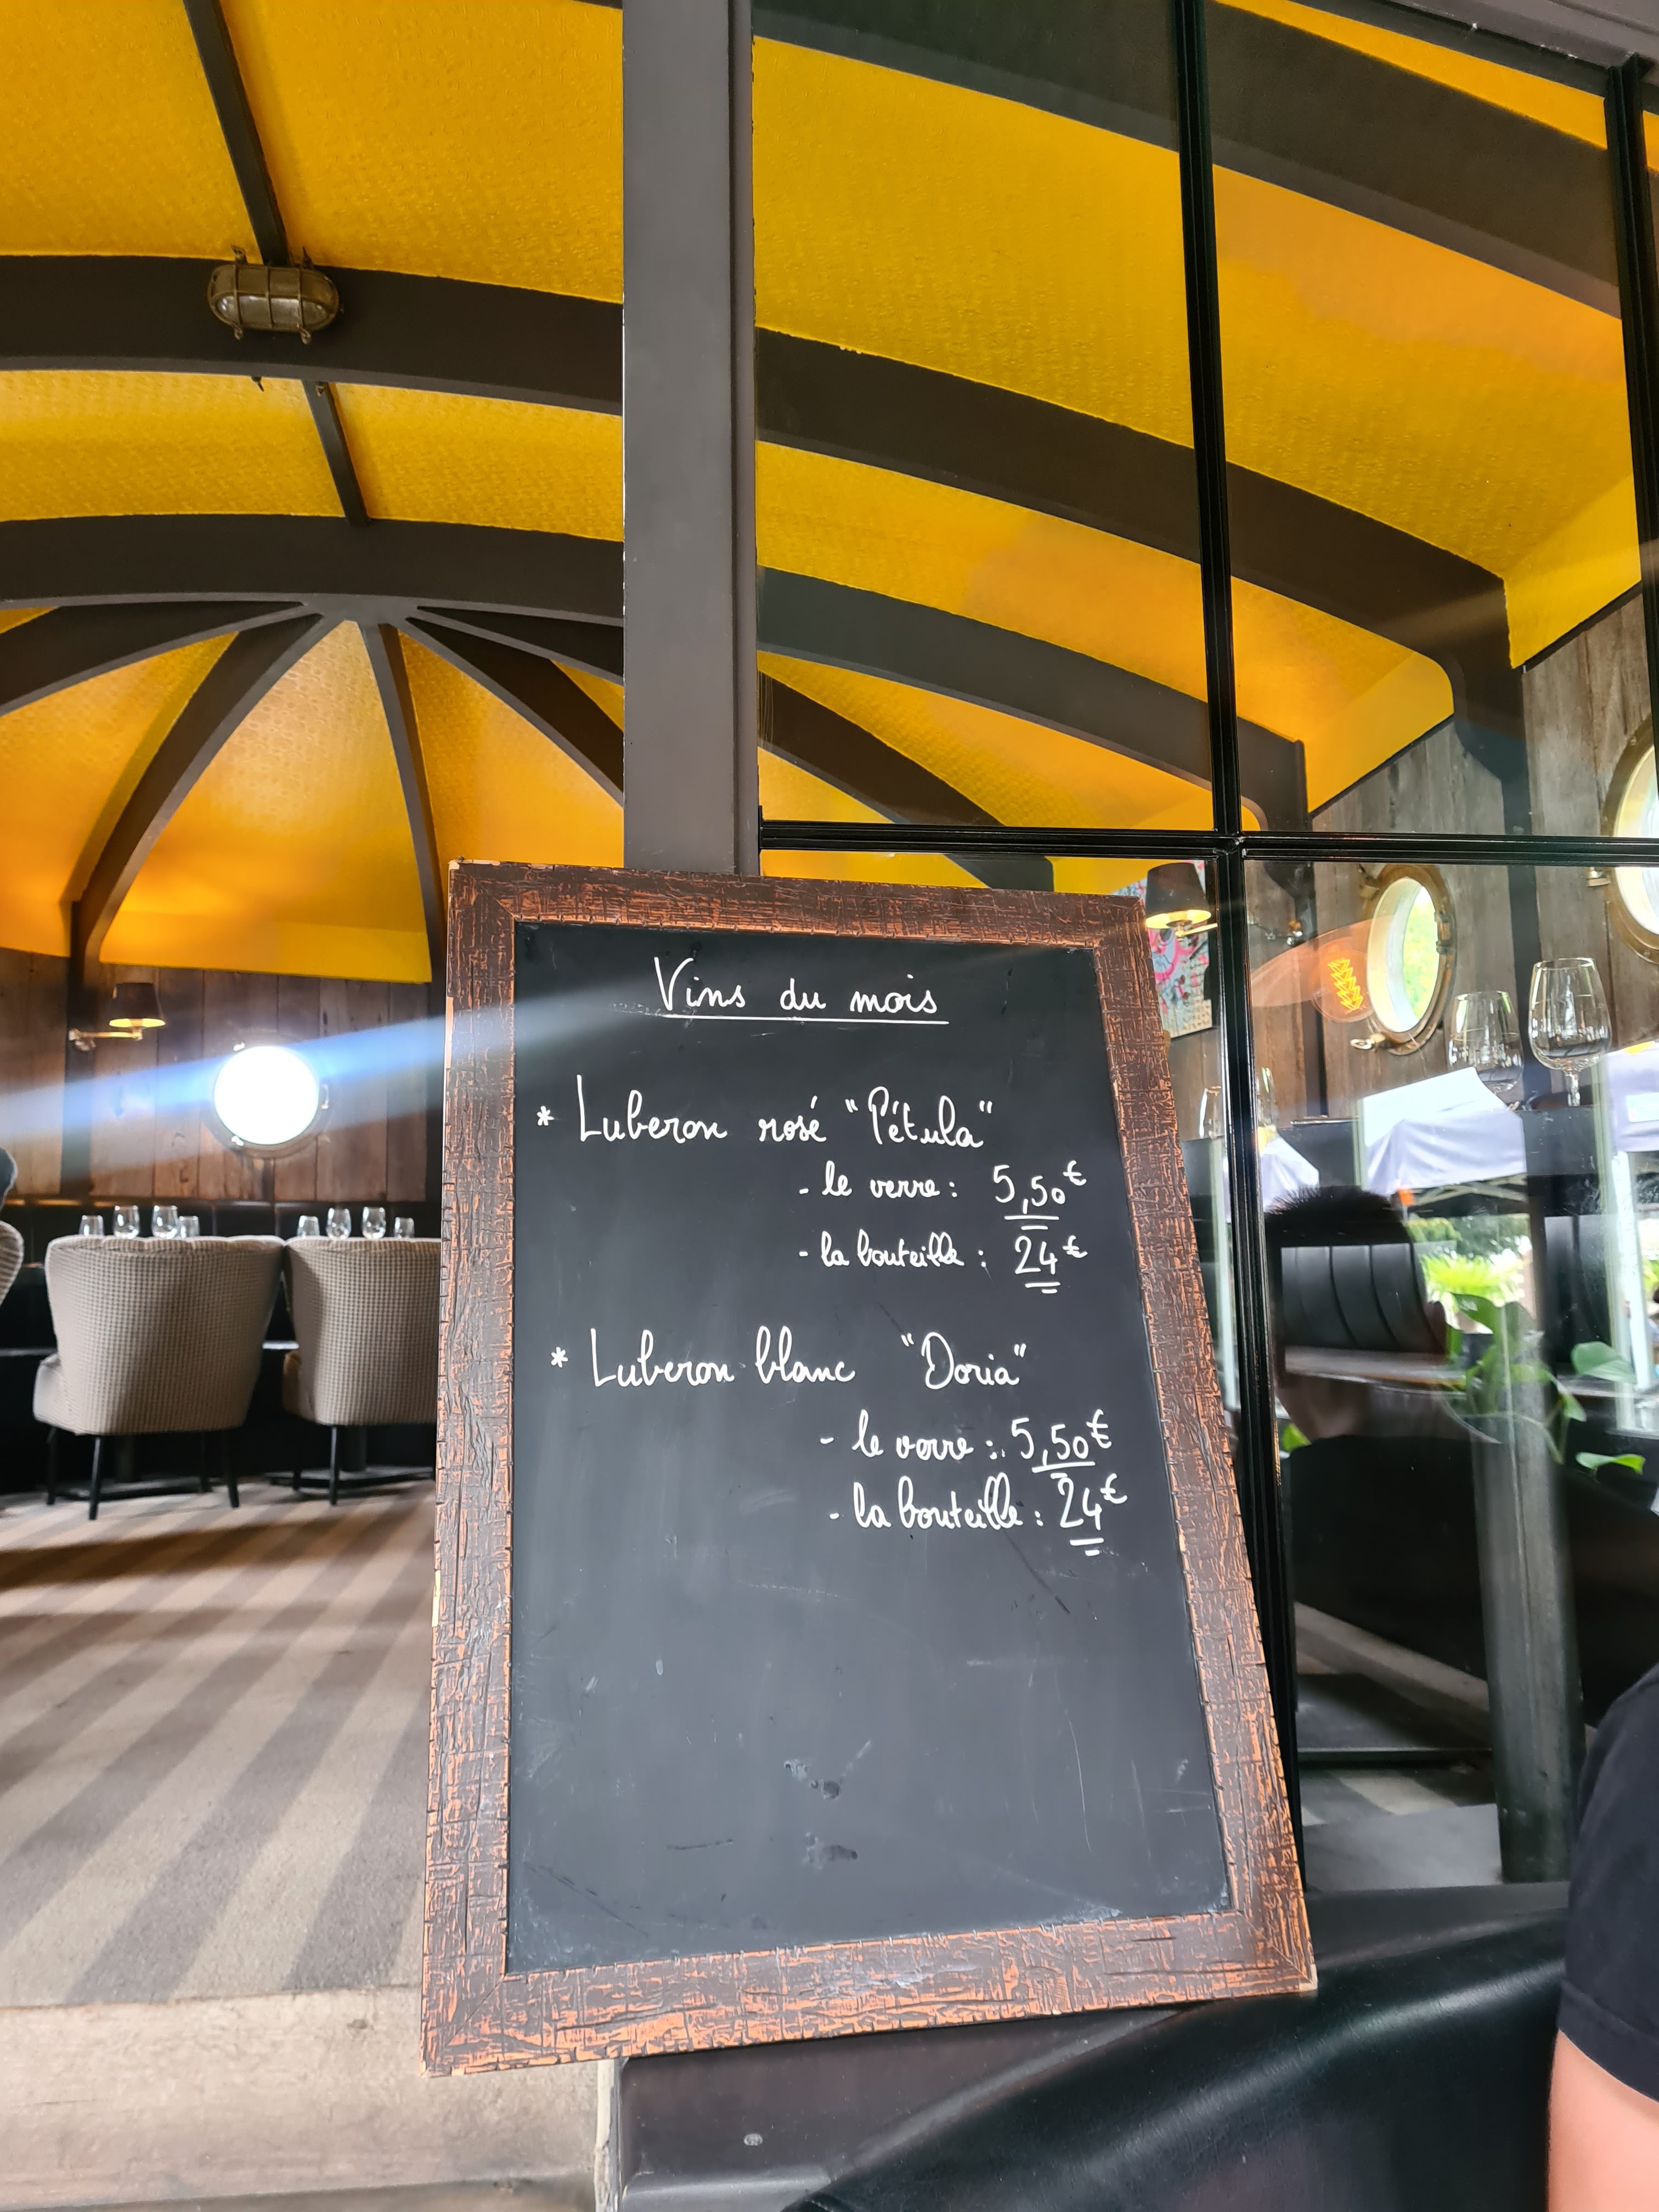 Vins du mois
* Luberon rosé "Pétula"
- le verre : 5,50€
- la bouteille : 24€
* Luberon blanc "Doria"
- le verre : 5,50€
- la bouteille : 24€